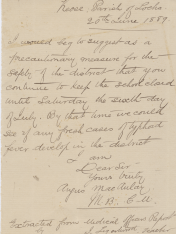 Parish of Lochs
20th June 1889.
I would beg to suggest as a
precautionary measure for the
safety of the district that you
continue to keep the school closed
until Saturday the sixth day
of July. By that time we could
see if any fresh cases of typhoid
fever develop in the district
I am
Dear Sir
Yours truly
Roger
M.B. C.M.
Extracted from Medical Officer Report